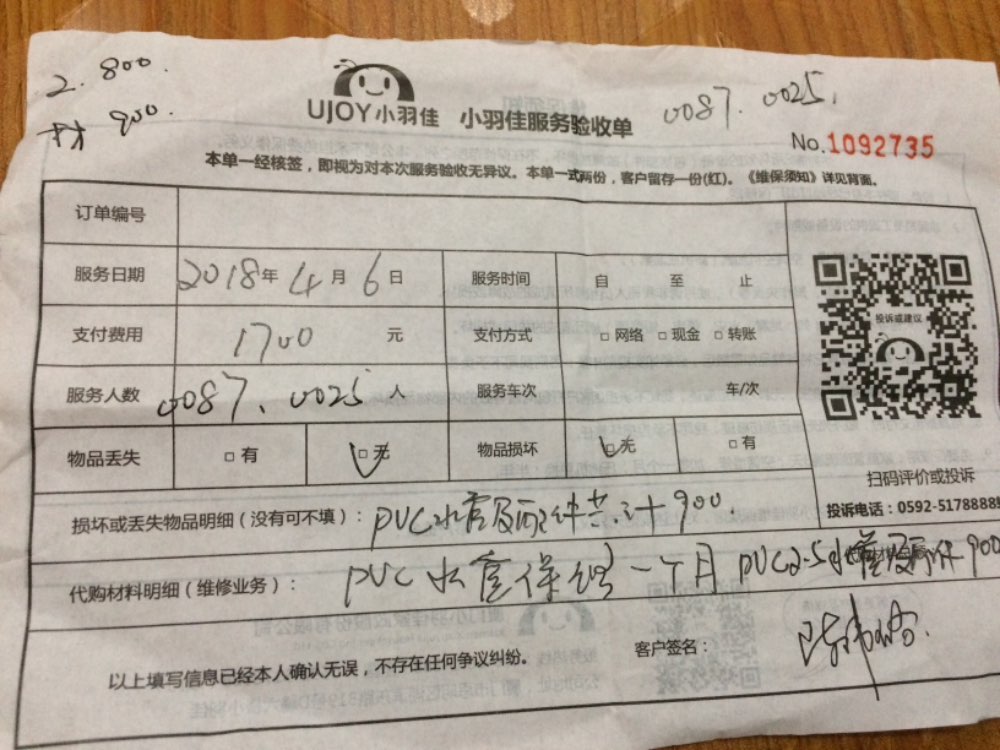 2. 800.
材 900.
UJOY小羽佳 小羽佳服务验收单
0087. 0025.
No.1092735
本单一经核签，即视为对本次服务验收无异议。本单一式两份，客户留存一份(红)。《维保须知》详见背面。
订单编号
服务日期 2018年 4月 6日 服务时间 自 至 止
支付费用 1700 元 支付方式 □ 网络 □ 现金 □ 转账
服务人数 0087、0025 人 服务车次 车/次
物品丢失 □ 有 □ 无 物品损坏 □ 无 □ 有
投诉或建议
扫码评价或投诉
投诉电话：0592-51788888
损坏或丢失物品明细（没有可不填）： PVC水管及配件共计900
代购材料明细（维修业务）： PVC水管保修一个月 PVC2.5水管及配件900
以上填写信息已经本人确认无误，不存在任何争议纠纷。 客户签名：